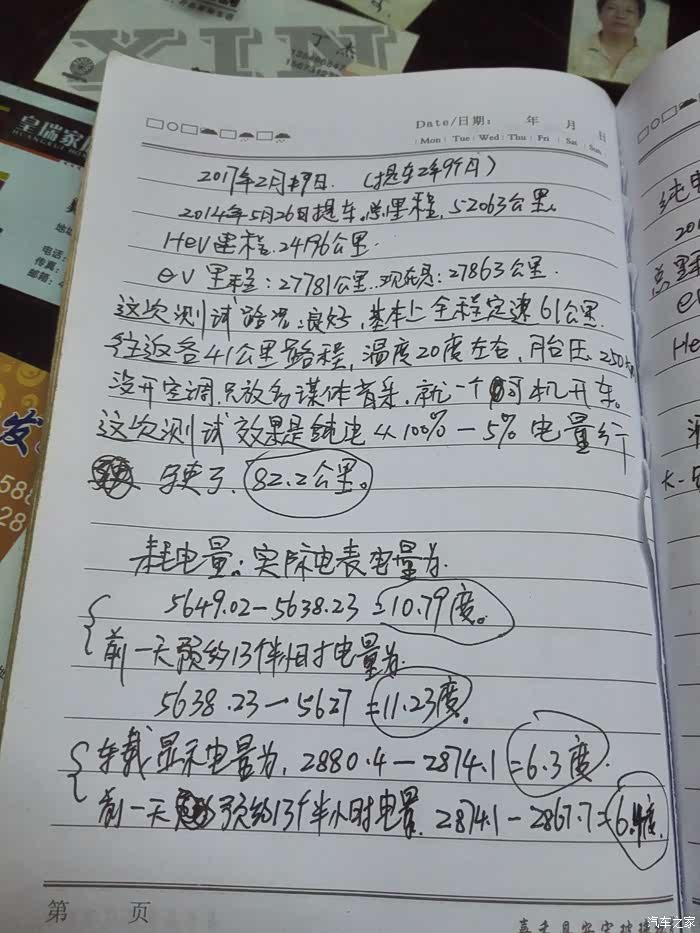 XIN
丁杰
皇瑞家
地址
电话:
传真:
邮箱:
发
588
528
Date/日期: 年 月 日
Mon Tue Wed Thu Fri Sat Sun
2017年2月19日. (提车2年9个月)
2014年5月26日提车.总里程.52063公里.
HeV里程.24196公里.
eV里程:27781公里.现在是:27863公里.
这次测试路况:良好,基本上全程定速61公里.
往返各41公里路程,温度20度左右,胎压.250
没开空调.只放多媒体音乐.就一个司机开车。
这次测试效果是纯电从100%-5%电量行
驶了.82.2公里。
耗电量:实际电表电量为.
5649.02-5638.23=10.79度。
前一天预约13个半小时电量为.
5638.23-5627=11.23度.
车载显示电量为,2880.4-2874.1=6.3度.
前一天预约13个半小时电量.2874.1-2867.7=6.4度.
第 页
纯电
201
总里
eV
He
汽车之家